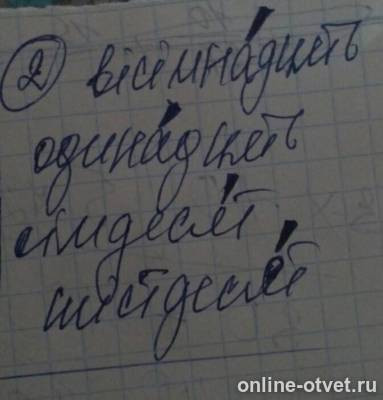 ② вісімна́дцять
одина́дцять
сімдеся́т
шістдеся́т
online-otvet.ru